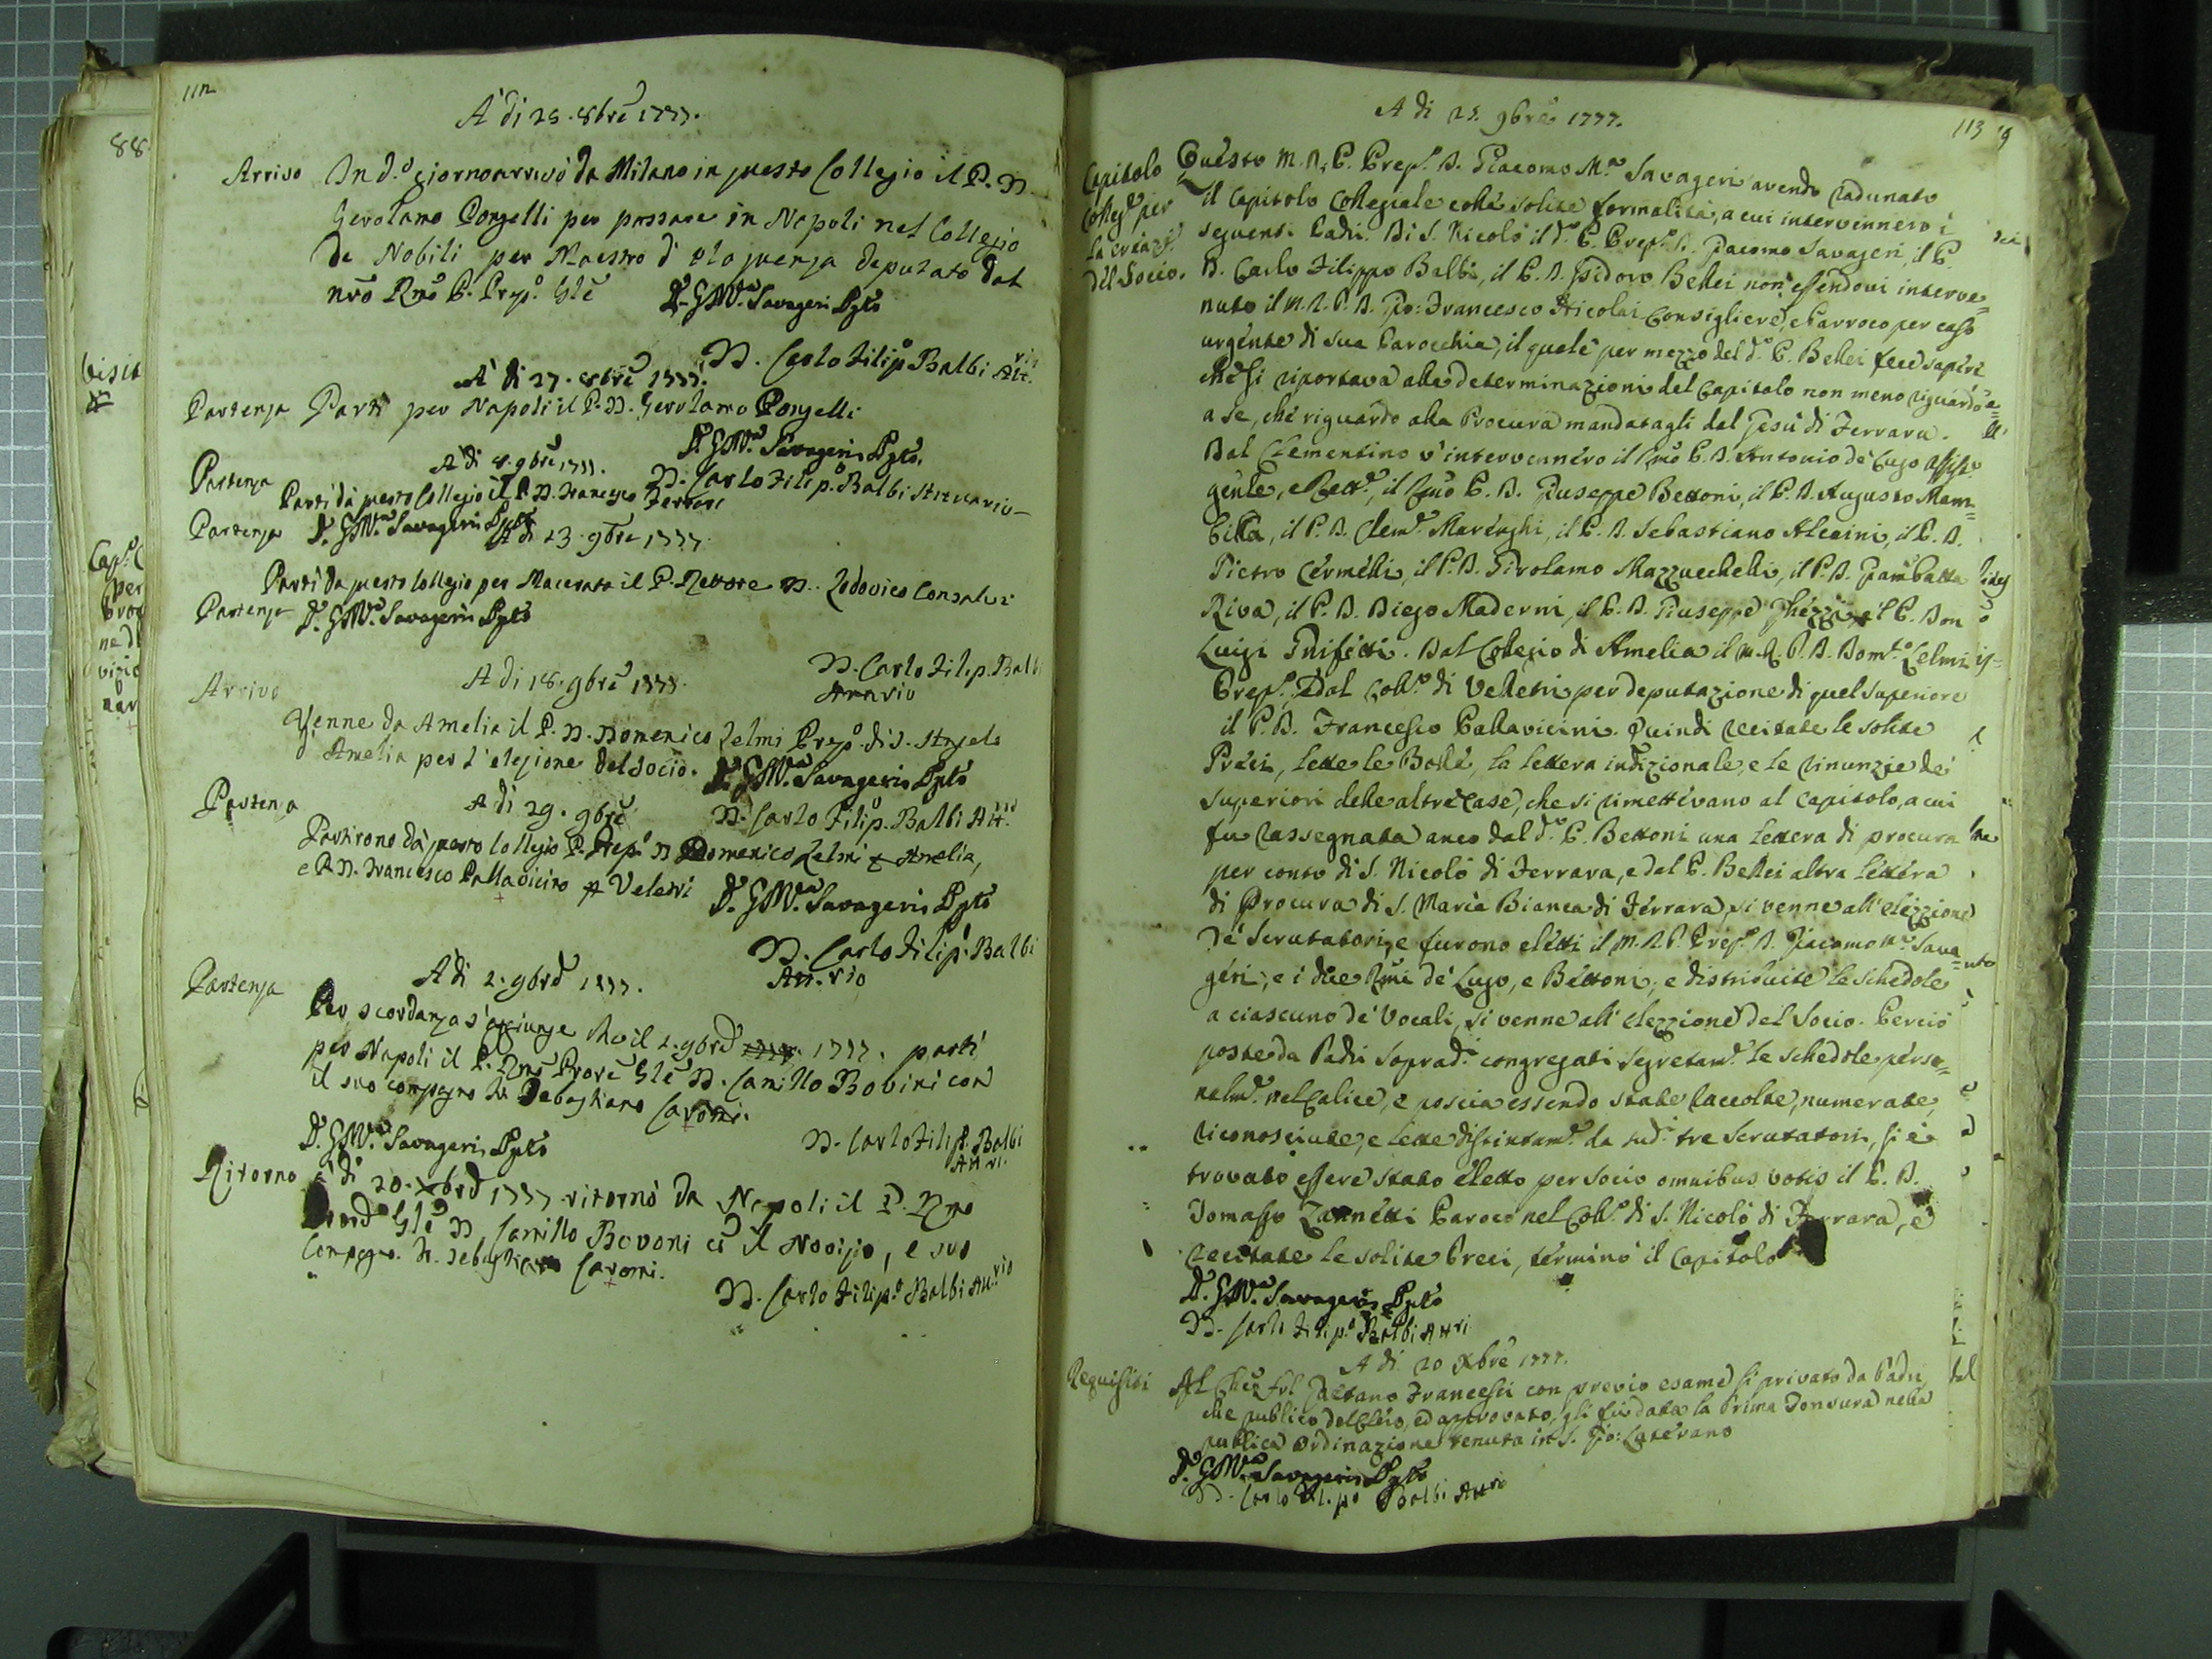 112
A dì 25. 8bre 1777.
Arrivo In d.º giorno arrivò da Milano in questo Collegio il P. D.
Gerolamo Ponzelli per passare in Napoli nel Collegio
de Nobili per Maestro d'eloquenza deputato dal
nrõ Rmõ P. Prep.º Glẽ
D. G. M.ª Savageri Pptõ
D. Carlo Filip.º Balbi Att.rio
A dì 27. 8bre 1777.
Partenza Partì per Napoli il P. D. Gerolamo Ponzelli
D. G. M.ª Savageri Pptõ.
D. Carlo Filip.º Balbi Attuario
A dì 8. 9bre 1777.
Partenza
Partì da questo Collegio il P. D. Francesco Ferrari
Partenza D. G. M.ª Savageri Pptõ
A dì 13. 9bre 1777.
Partì da questo Collegio per Macerata il P. Rettore D. Lodovico Consalvi
Partenza D. G. M.ª Savageri Pptõ
D. Carlo Filip. Balbi
Attuario
Arrivo
A dì 18. 9bre 1777.
Venne da Amelia il P. D. Domenico Zelmi Prep.º di S. Angelo
d'Amelia per l'elezione del Socio. D. G. M.ª Savageri Pptõ
D. Carlo Filip.º Balbi Att.rio
Partenza
A dì 29. 9bre
Partirono da questo Collegio P. Prep.º D. Domenico Zelmi x Amelia,
e P. D. Francesco Pallavicino x Veletri
D. G. M.ª Savageri Pptõ
D. Carlo Filip.º Balbi
Att.rio
A dì 2. 9bre 1777.
Partenza
Per scordanza s'aggiunge che il 2. 9bre 1777. partì
per Napoli il P. Rmõ Glẽ D. Camillo Bovini con
il suo compagno Fr. Sebastiano Cavorsi.
D. G. M.ª Savageri Pptõ
D. Carlo Filip.º Balbi
Att.ri.
Ritorno a dì 20. Xbre 1777 ritornò da Napoli il P. Rmo
Glẽ D. Camillo Bovoni ed il Novizio, e suo
Compagno Fr. Sebastiano Cavorsi.
D. Carlo Filip.º Balbi Att.rio
113
A dì 25. 9bre 1777.
Capitolo
Colleg.le per
la creaz.e
del Socio.
Questo M. R. P. Prep.º D. Giacomo M.ª Savageri avendo radunato
il Capitolo Collegiale colle solite formalità, a cui intervennero i
seguenti Padri. Di S. Nicolò il d.º P. Prep.º D. Giacomo Savageri, il P.
D. Carlo Filippo Balbi, il P. D. Isidoro Bellei non essendovi interve=
nuto il M. R. P. D. Gio: Francesco Nicolai Consigliere, e Parroco per caso
urgente di sua Parocchia, il quale per mezzo del d.º P. Bellei fece sapere
che si riportava alle determinazioni del Capitolo non meno riguardo
a se, che riguardo alla Procura mandatagli dal Gesù di Ferrara.
Dal Clementino v'intervennero il Rmõ P. D. Antonio de Lugo
e Rett.e, il Rmõ P. D. Giuseppe Bettoni, il P. D. Augusto Mam=
billa, il P. D. Clem.e Marenghi, il P. D. Sebastiano Alcaini, il P. D.
Pietro Cermelli, il P. D. Girolamo Mazzucchelli, il P. D. Giambatta
Riva, il P. D. Diego Maderni, il P. D. Giuseppe Ghezzi, e il P. Don
Luigi Trifetti. Dal Collegio di Amelia il M. R. P. D. Dom.co Zelmi
Prep.º, e dal Coll.º di Velletri per deputazione di quel Superiore
il P. D. Francesco Pallavicini. Quindi recitate le solite
Preci, lette le Bolle, la lettera indizionale, e le rinunzie de'
Superiori delle altre Case, che si rimettevano al Capitolo, a cui
fu rassegnata anco dal d.º P. Bettoni una lettera di procura
per conto di S. Nicolò di Ferrara, e dal P. Bellei altra lettera
di Procura di S. Maria Bianca di Ferrara, si venne all'elezzione
de' Scrutatori, e furono eletti il M. R. P. Prep.º D. Giacomo M.ª Sava
geri, e i due Rmĩ de Lugo, e Bettoni, e distribuite le schedole
a ciascuno de' Vocali, si venne all'elezzione del Socio. Perciò
poste da Padri soprad.i congregati segretam.e le schedole perso=
nalm.e nel Calice, e poscia essendo state raccolte, numerate,
riconosciute, e lette distintam.e da sud.i tre Scrutatori, si è
trovato essere stato eletto per Socio omnibus votis il P. D.
Tomaso Zannetti Paroco nel Coll.º di S. Nicolò di Ferrara, e
recitate le solite Preci, terminò il Capitolo
D. G. M.ª Savageri Pptõ
D. Carlo Filip.º Balbi Att.ri
A dì 20 Xbre 1777.
Requisiti Al Gaetano Franceschi con previo esame si privato da Padri,
che publico del Clero, ed approvato, gli fu data la Prima Tonsura nella
publica Ordinazione tenuta in S. Gio: Laterano
D. G. M.ª Savageri Pptõ
D. Carlo Filip.º Balbi Att.ri
88
visit